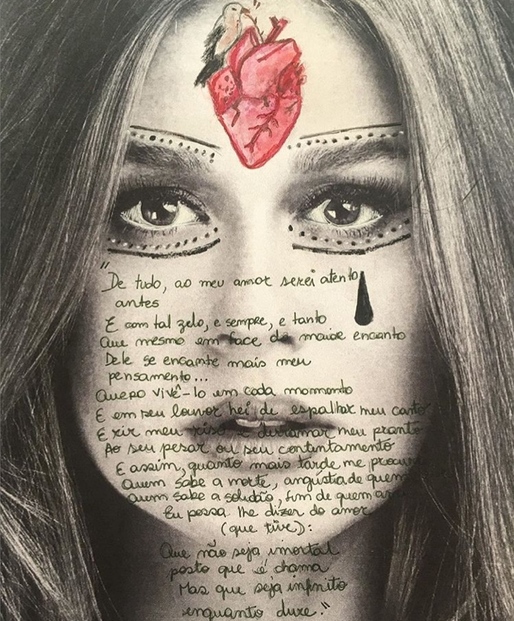 "De tudo, ao meu amor serei atento
antes
E com tal zelo, e sempre, e tanto
Que mesmo em face do maior encanto
Dele se encante mais meu
pensamento...
Quero vivê-lo em cada momento
E em seu louvor hei de espalhar meu canto
E rir meu riso e derramar meu pranto
Ao seu pesar ou seu contentamento
E assim, quanto mais tarde me procure
Quem sabe a morte, angústia de quem
Quem sabe a solidão, fim de quem am
Eu possa lhe dizer do amor
(que tive):
Que não seja imortal
posto que é chama
Mas que seja infinito
enquanto dure."